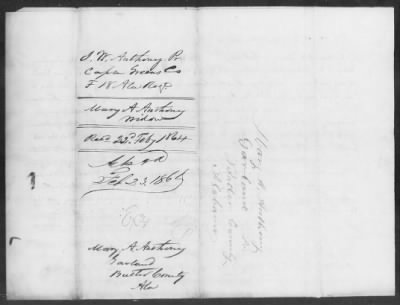 J. W. Anthony Pr
Capn Greens Co
F 18 Ala Regt
Mary A Anthony
Widow
Recd 22d Feby 1864
Feb 23. 1864
Mary A. Anthony
Garland
Butler County
Ala
Mary A. Anthony
Garland
Butler County
Alabama